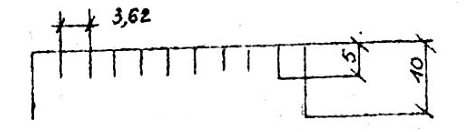 3,62
5
10